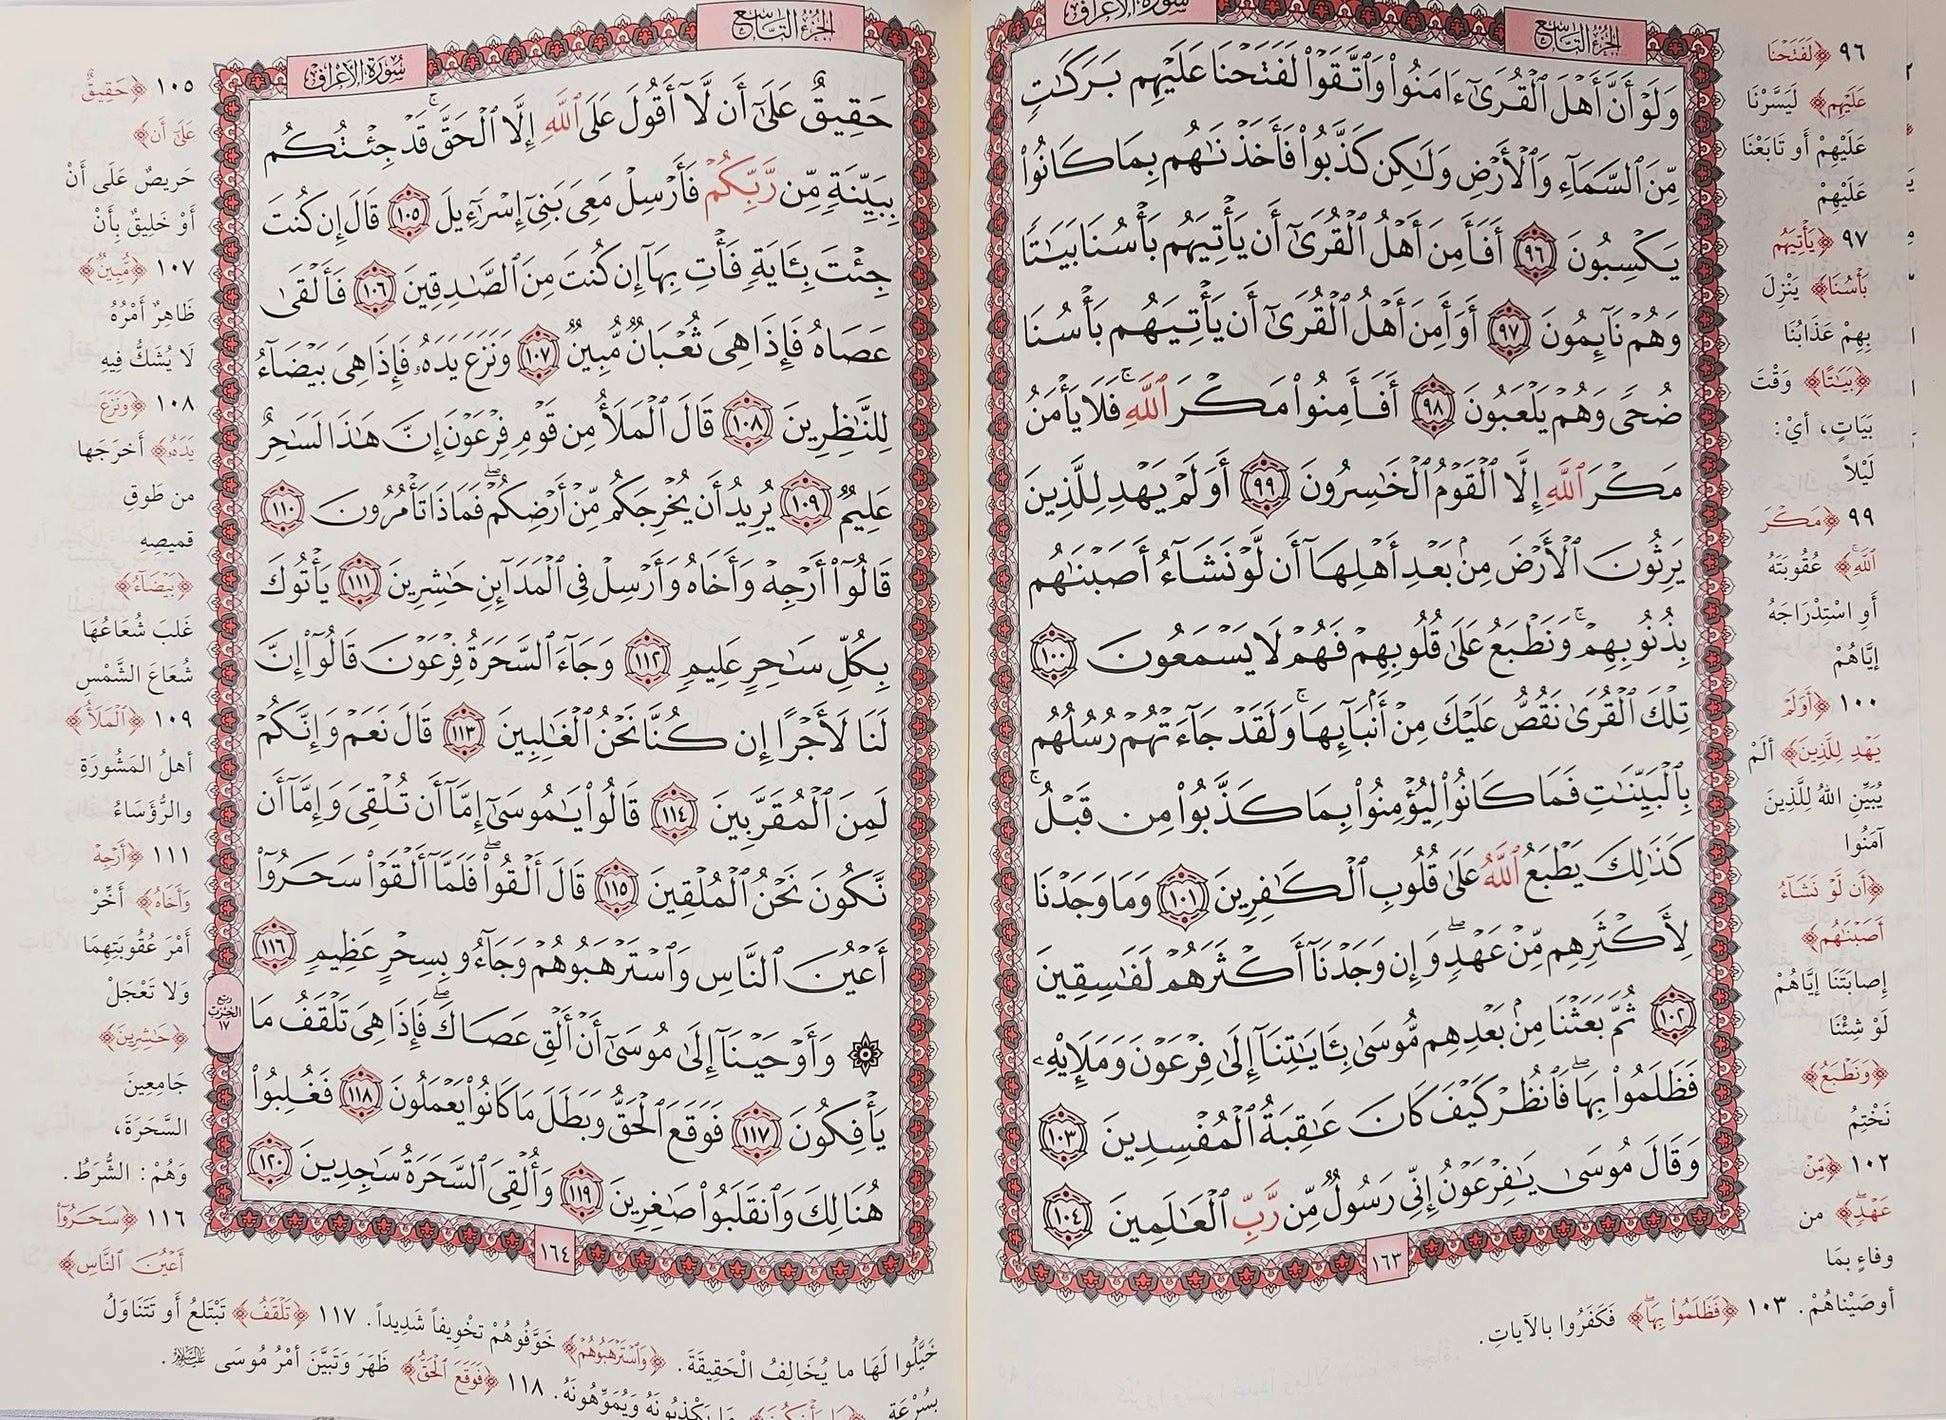 الجزء التاسع
سورة الأعراف
وَلَوْ أَنَّ أَهْلَ ٱلْقُرَىٰٓ ءَامَنُوا۟ وَٱتَّقَوْا۟ لَفَتَحْنَا عَلَيْهِم بَرَكَٰتٍ
مِّنَ ٱلسَّمَآءِ وَٱلْأَرْضِ وَلَٰكِن كَذَّبُوا۟ فَأَخَذْنَٰهُم بِمَا كَانُوا۟
يَكْسِبُونَ ٩٦ أَفَأَمِنَ أَهْلُ ٱلْقُرَىٰٓ أَن يَأْتِيَهُم بَأْسُنَا بَيَٰتًا
وَهُمْ نَآئِمُونَ ٩٧ أَوَأَمِنَ أَهْلُ ٱلْقُرَىٰٓ أَن يَأْتِيَهُم بَأْسُنَا
ضُحًى وَهُمْ يَلْعَبُونَ ٩٨ أَفَأَمِنُوا۟ مَكْرَ ٱللَّهِ ۚ فَلَا يَأْمَنُ
مَكْرَ ٱللَّهِ إِلَّا ٱلْقَوْمُ ٱلْخَٰسِرُونَ ٩٩ أَوَلَمْ يَهْدِ لِلَّذِينَ
يَرِثُونَ ٱلْأَرْضَ مِنۢ بَعْدِ أَهْلِهَآ أَن لَّوْ نَشَآءُ أَصَبْنَٰهُم
بِذُنُوبِهِمْ ۚ وَنَطْبَعُ عَلَىٰ قُلُوبِهِمْ فَهُمْ لَا يَسْمَعُونَ ١٠٠
تِلْكَ ٱلْقُرَىٰ نَقُصُّ عَلَيْكَ مِنْ أَنۢبَآئِهَا ۚ وَلَقَدْ جَآءَتْهُمْ رُسُلُهُم
بِٱلْبَيِّنَٰتِ فَمَا كَانُوا۟ لِيُؤْمِنُوا۟ بِمَا كَذَّبُوا۟ مِن قَبْلُ ۚ
كَذَٰلِكَ يَطْبَعُ ٱللَّهُ عَلَىٰ قُلُوبِ ٱلْكَٰفِرِينَ ١٠١ وَمَا وَجَدْنَا
لِأَكْثَرِهِم مِّنْ عَهْدٍ ۖ وَإِن وَجَدْنَآ أَكْثَرَهُمْ لَفَٰسِقِينَ
١٠٢ ثُمَّ بَعَثْنَا مِنۢ بَعْدِهِم مُّوسَىٰ بِـَٔايَٰتِنَآ إِلَىٰ فِرْعَوْنَ وَمَلَإِي۟هِۦ
فَظَلَمُوا۟ بِهَا ۖ فَٱنظُرْ كَيْفَ كَانَ عَٰقِبَةُ ٱلْمُفْسِدِينَ ١٠٣
وَقَالَ مُوسَىٰ يَٰفِرْعَوْنُ إِنِّى رَسُولٌ مِّن رَّبِّ ٱلْعَٰلَمِينَ ١٠٤
١٦٣
٩٦ ﴿لَفَتَحْنَا
عَلَيْهِم﴾ لَيَسَّرْنَا
عَلَيْهِمْ أَو تَابَعْنَا
عَلَيْهِمْ
٩٧ ﴿يَأْتِيَهُم
بَأْسُنَا﴾ يَنْزِلَ
بِهِمْ عَذَابُنَا
﴿بَيَٰتًا﴾ وَقْتَ
بَيَاتٍ، أيْ:
لَيْلاً
٩٩ ﴿مَكْرَ
ٱللَّهِ ۚ﴾ عُقُوبَتَهُ
أَوِ اسْتِدْرَاجَهُ
إيَّاهُمْ
١٠٠ ﴿أَوَلَمْ
يَهْدِ لِلَّذِينَ﴾ ألَمْ
يُبَيِّنِ اللهُ لِلَّذِينَ
آمَنُوا
﴿أَن لَّوْ نَشَآءُ
أَصَبْنَٰهُم﴾
إِصابَتَنا إيَّاهُمْ
لَوْ شِئْنَا
﴿وَنَطْبَعُ﴾
نَخْتِمُ
١٠٢ ﴿مِّنْ
عَهْدٍ ۖ﴾ من
وفاءٍ بمَا
أوصَيْناهُمْ. ١٠٣ ﴿فَظَلَمُوا۟ بِهَا ۖ﴾ فكَفَرُوا بالآياتِ.
الجزء التاسع
سورة الأعراف
حَقِيقٌ عَلَىٰٓ أَن لَّآ أَقُولَ عَلَى ٱللَّهِ إِلَّا ٱلْحَقَّ ۚ قَدْ جِئْتُكُم
بِبَيِّنَةٍ مِّن رَّبِّكُمْ فَأَرْسِلْ مَعِىَ بَنِىٓ إِسْرَٰٓءِيلَ ١٠٥ قَالَ إِن كُنتَ
جِئْتَ بِـَٔايَةٍ فَأْتِ بِهَآ إِن كُنتَ مِنَ ٱلصَّٰدِقِينَ ١٠٦ فَأَلْقَىٰ
عَصَاهُ فَإِذَا هِىَ ثُعْبَانٌ مُّبِينٌ ١٠٧ وَنَزَعَ يَدَهُۥ فَإِذَا هِىَ بَيْضَآءُ
لِلنَّٰظِرِينَ ١٠٨ قَالَ ٱلْمَلَأُ مِن قَوْمِ فِرْعَوْنَ إِنَّ هَٰذَا لَسَٰحِرٌ
عَلِيمٌ ١٠٩ يُرِيدُ أَن يُخْرِجَكُم مِّنْ أَرْضِكُمْ ۖ فَمَاذَا تَأْمُرُونَ ١١٠
قَالُوٓا۟ أَرْجِهْ وَأَخَاهُ وَأَرْسِلْ فِى ٱلْمَدَآئِنِ حَٰشِرِينَ ١١١ يَأْتُوكَ
بِكُلِّ سَٰحِرٍ عَلِيمٍ ١١٢ وَجَآءَ ٱلسَّحَرَةُ فِرْعَوْنَ قَالُوٓا۟ إِنَّ
لَنَا لَأَجْرًا إِن كُنَّا نَحْنُ ٱلْغَٰلِبِينَ ١١٣ قَالَ نَعَمْ وَإِنَّكُمْ
لَمِنَ ٱلْمُقَرَّبِينَ ١١٤ قَالُوا۟ يَٰمُوسَىٰٓ إِمَّآ أَن تُلْقِىَ وَإِمَّآ أَن
نَّكُونَ نَحْنُ ٱلْمُلْقِينَ ١١٥ قَالَ أَلْقُوا۟ ۖ فَلَمَّآ أَلْقَوْا۟ سَحَرُوٓا۟
أَعْيُنَ ٱلنَّاسِ وَٱسْتَرْهَبُوهُمْ وَجَآءُو بِسِحْرٍ عَظِيمٍ ١١٦
۞ وَأَوْحَيْنَآ إِلَىٰ مُوسَىٰٓ أَنْ أَلْقِ عَصَاكَ ۖ فَإِذَا هِىَ تَلْقَفُ مَا
يَأْفِكُونَ ١١٧ فَوَقَعَ ٱلْحَقُّ وَبَطَلَ مَا كَانُوا۟ يَعْمَلُونَ ١١٨ فَغُلِبُوا۟
هُنَالِكَ وَٱنقَلَبُوا۟ صَٰغِرِينَ ١١٩ وَأُلْقِىَ ٱلسَّحَرَةُ سَٰجِدِينَ ١٢٠
١٦٤
ربع
الحزب
١٧
١٠٥ ﴿حَقِيقٌ
عَلَىٰٓ أَن﴾
حَريصٌ عَلَى أنْ
أوْ خَلِيقٌ بِأَنْ
١٠٧ ﴿مُّبِينٌ﴾
ظَاهِرٌ أَمْرُهُ
لَا يُشَكُّ فِيهِ
١٠٨ ﴿وَنَزَعَ
يَدَهُۥ﴾ أَخرَجَها
من طَوقِ
قميصِهِ
﴿بَيْضَآءُ﴾
غَلبَ شُعَاعُهَا
شُعَاعَ الشَّمْسِ
١٠٩ ﴿ٱلْمَلَأُ﴾
أهلُ المَشُورَةِ
والرُّؤَسَاءُ
١١١ ﴿أَرْجِهْ
وَأَخَاهُ﴾ أَخِّرْ
أمْرَ عُقُوبَتِهِمَا
وَلا تَعْجَلْ
﴿حَٰشِرِينَ﴾
جَامِعِينَ
السَّحَرَةَ،
وَهُمْ: الشُّرَطُ.
١١٦ ﴿سَحَرُوٓا۟
أَعْيُنَ ٱلنَّاسِ﴾
خَيَّلُوا لَهَا ما يُخَالِفُ الْحَقِيقَةَ. ﴿وَٱسْتَرْهَبُوهُمْ﴾ خَوَّفُوهُمْ تخْوِيفاً شَدِيداً. ١١٧ ﴿تَلْقَفُ﴾ تَبْتَلعُ أَو تَتَنَاوَلُ
بسُرْعَةٍ ﴿مَا يَأْفِكُونَ﴾ ما يَكْذِبُونَهُ وَيُمَوِّهُونَهُ. ١١٨ ﴿فَوَقَعَ ٱلْحَقُّ﴾ ظَهَرَ وَتَبَيَّنَ أمْرُ مُوسَى عليه السلام.